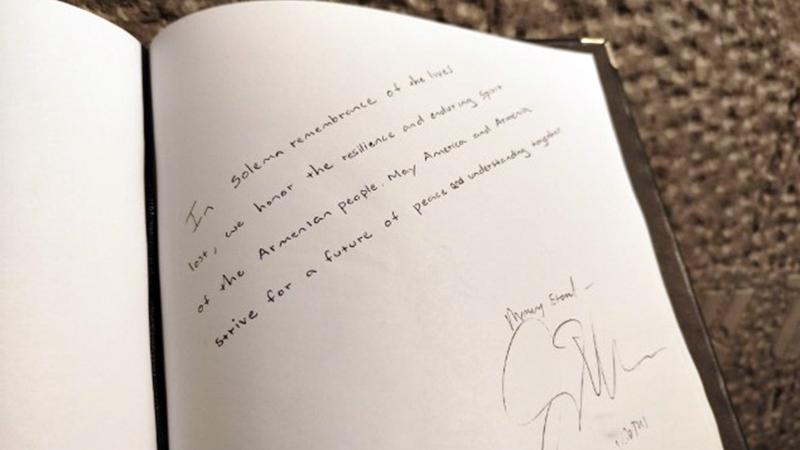 In solemn remembrance of the lives
lost, we honor the resilience and enduring spirit
of the Armenian people. May America and Armenia
strive for a future of peace and understanding together